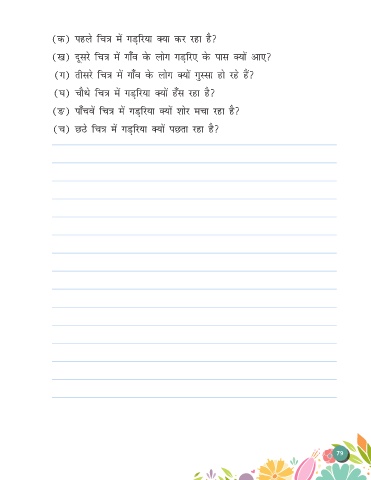 (क) पहले चित्र में गड़रिया क्या कर रहा है?
(ख) दूसरे चित्र में गाँव के लोग गड़रिए के पास क्यों आए?
(ग) तीसरे चित्र में गाँव के लोग क्यों गुस्सा हो रहे हैं?
(घ) चौथे चित्र में गड़रिया क्यों हँस रहा है?
(ङ) पाँचवें चित्र में गड़रिया क्यों शोर मचा रहा है?
(च) छठे चित्र में गड़रिया क्यों पछता रहा है?
79